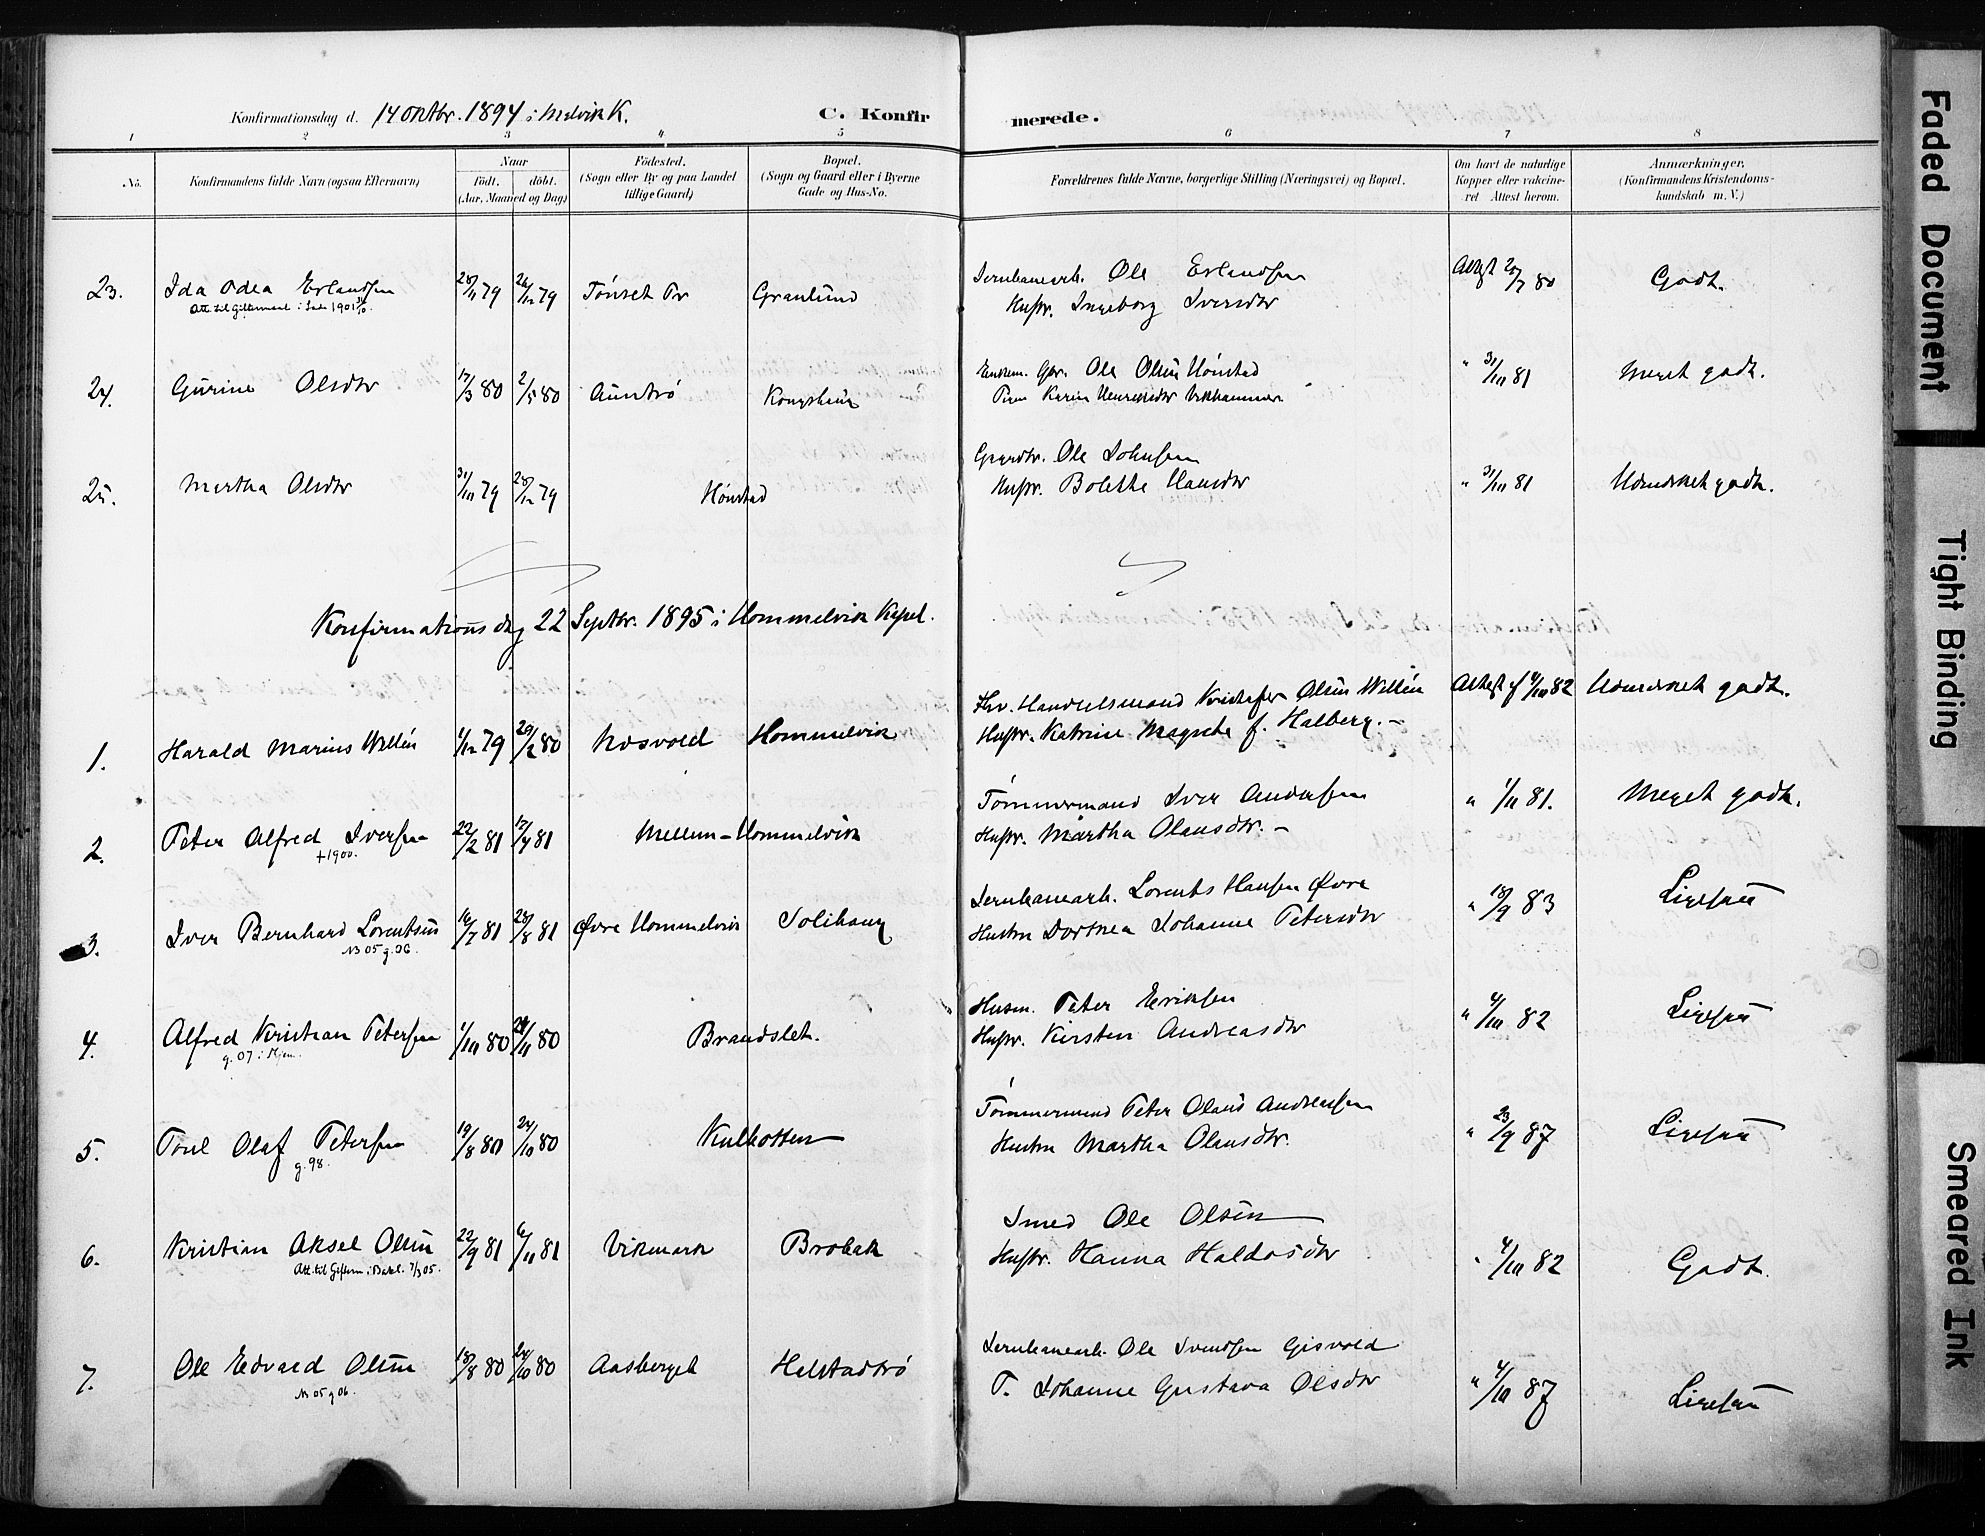 Konfirmationsdag d. 14 Oktbr. 1894 i Melvik K. C. Konfir merede.
1 2 3 4 5 6 7 8
No. Konfirmandens fulde Navn (ogsaa Efternavn) Naar Født. døbt. (Aar, Maaned og Dag) Fødested. (Sogn eller By og paa Landet tillige Gaard) Bopæl. (Sogn og Gaard eller i Byerne Gade og Hus-No. Forældrenes fulde Navne, borgerlige Stilling (Næringsvei) og Bopæl. Om havt de naturlige Kopper eller vakcineret Attest herom. Anmærkninger. (Konfirmandens Kristendomskundskab m. V.)
23. Ida Odea Erlandsen 28/11 79 26/12 79 Tønset Pr Granlund Jernbanearb. Ole Erlandsen Attest 20/7 80 Godt.
Att. til Giftermaal i 1901
Hustr. Ingeborg Iversdtr
24. Gurine Olsdtr 17/3 80 2/5 80 Auntrø Kongshaug Enkem. Gbr. Ole Olsen Hønstad " 31/10 81 Meget godt.
Karen Vikhammer
25. Martha Olsdtr 31/10 79 28/12 79 Hønstad Gaardbr. Ole Johnsen " 31/10 81 Udmærket godt.
Hustr. Bolethe Hansdtr
Konfirmationsdag 22 Septbr. 1895 i Hommelvik Kapel.
1. Harald Marius Willén 1/12 79 29/2 80 Mosvold Hommelvik Fhv. Handelsmand Kristofer Olsen Willén Attest af 4/10 82 Udmærket godt.
Hustr. Katrine Magrete f. Halberg. -
2. Peter Alfred Iversen 22/2 81 17/4 81 Mellem-Hommelvik Tømmermand Iver Andersen " 1/11 81. Meget godt.
+1900.
Hustr. Martha Olausdtr. -
3. Iver Bernhard Lorentsen 16/7 81 28/8 81 Øvre Hommelvik Solihaug Jernbanearb. Lorents Hansen Øvre " 18/9 83 Ligesaa
N3 05 g. 06.
Hustru Dorthea Johanne Petersdtr
4. Alfred Kristian Petersen 1/10 80 21/11 80 Brandslet. Husm. Peter Eriksen " 4/10 82 Ligesaa
g. 07 i
Hustr. Kirsten Andreasdtr
5. Poul Olaf Petersen 19/8 80 24/10 80 Kulkotten Tømmermand Peter Olaus Andreassen " 23/9 87 Ligesaa
g. 98.
Hustru Martha Olausdtr.
6. Kristian Aksel Olsen 22/9 81 6/11 81 Vikmark Brobak Smed Ole Olsen " 4/10 82 Godt.
Att. til Gifterm. i Bakl. 7/3 05.
Hustr. Hanna Haldosdtr
7. Ole Edvard Olsen 18/8 80 24/10 80 Aasberget Helstadtrø Jernbanearb. Ole Svendsen Gisvold " 4/10 87 Ligesaa
N3 05 g 06.
P. Johanne Gustava Olsdtr
Faded Document
Tight Binding
Smeared Ink